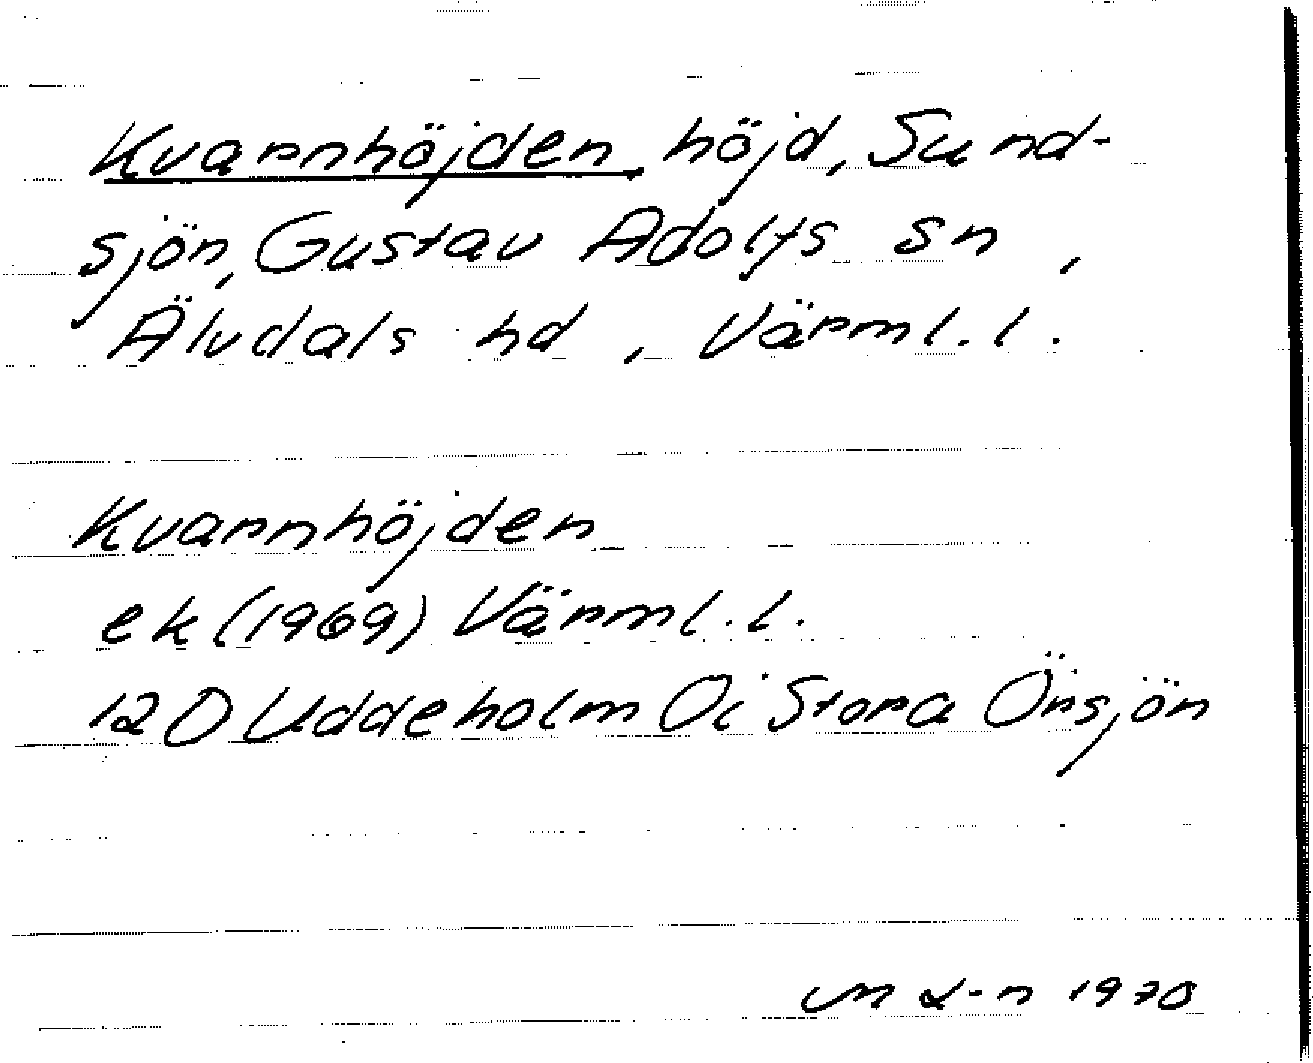 Kvarnhöjden, höjd, Sund-
sjön, Gustav Adolfs sn,
Älvdals hd, Värml. l.
Kvarnhöjden
ek (1969) Värml. l.
12D Uddeholm Oi Stora Örsjön
1970